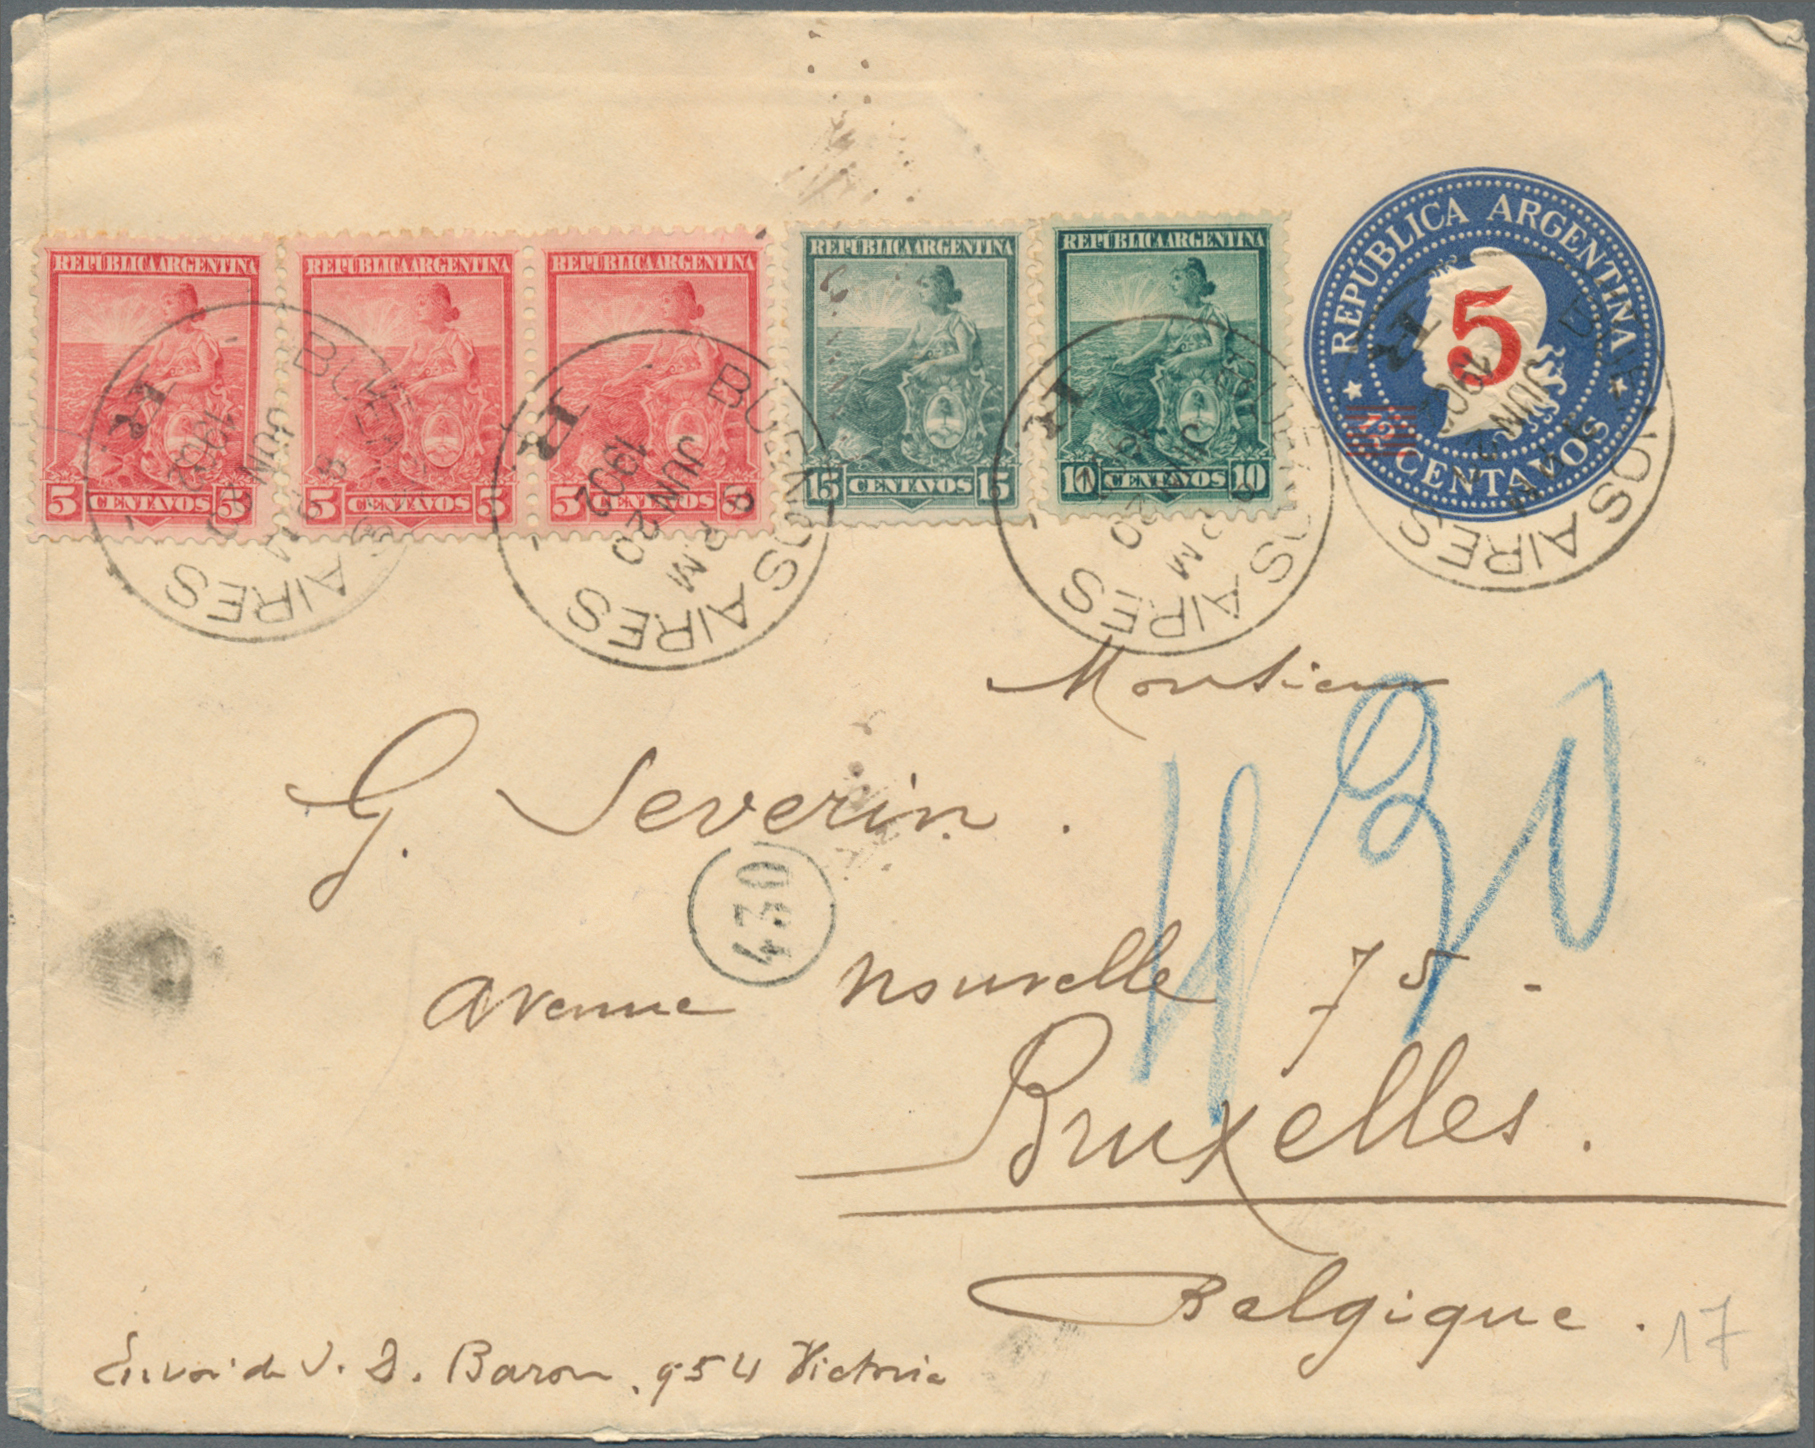 REPÚBLICA ARGENTINA
5 CENTAVOS 5
REPÚBLICA ARGENTINA
5 CENTAVOS 5
REPÚBLICA ARGENTINA
5 CENTAVOS 5
REPÚBLICA ARGENTINA
15 CENTAVOS 15
REPÚBLICA ARGENTINA
10 CENTAVOS 10
REPÚBLICA ARGENTINA
5
CENTAVOS
BUENOS AIRES
1902
JUN 20
PM
BUENOS AIRES
1902
JUN 20
8 PM
BUENOS AIRES
JUN 20
PM
BUENOS AIRES
JUN
Monsieur
G. Severin.
430
avenue nouvelle 75 -
Bruxelles.
Belgique.
Envoi de J. D. Baron, 954 Victoria
17